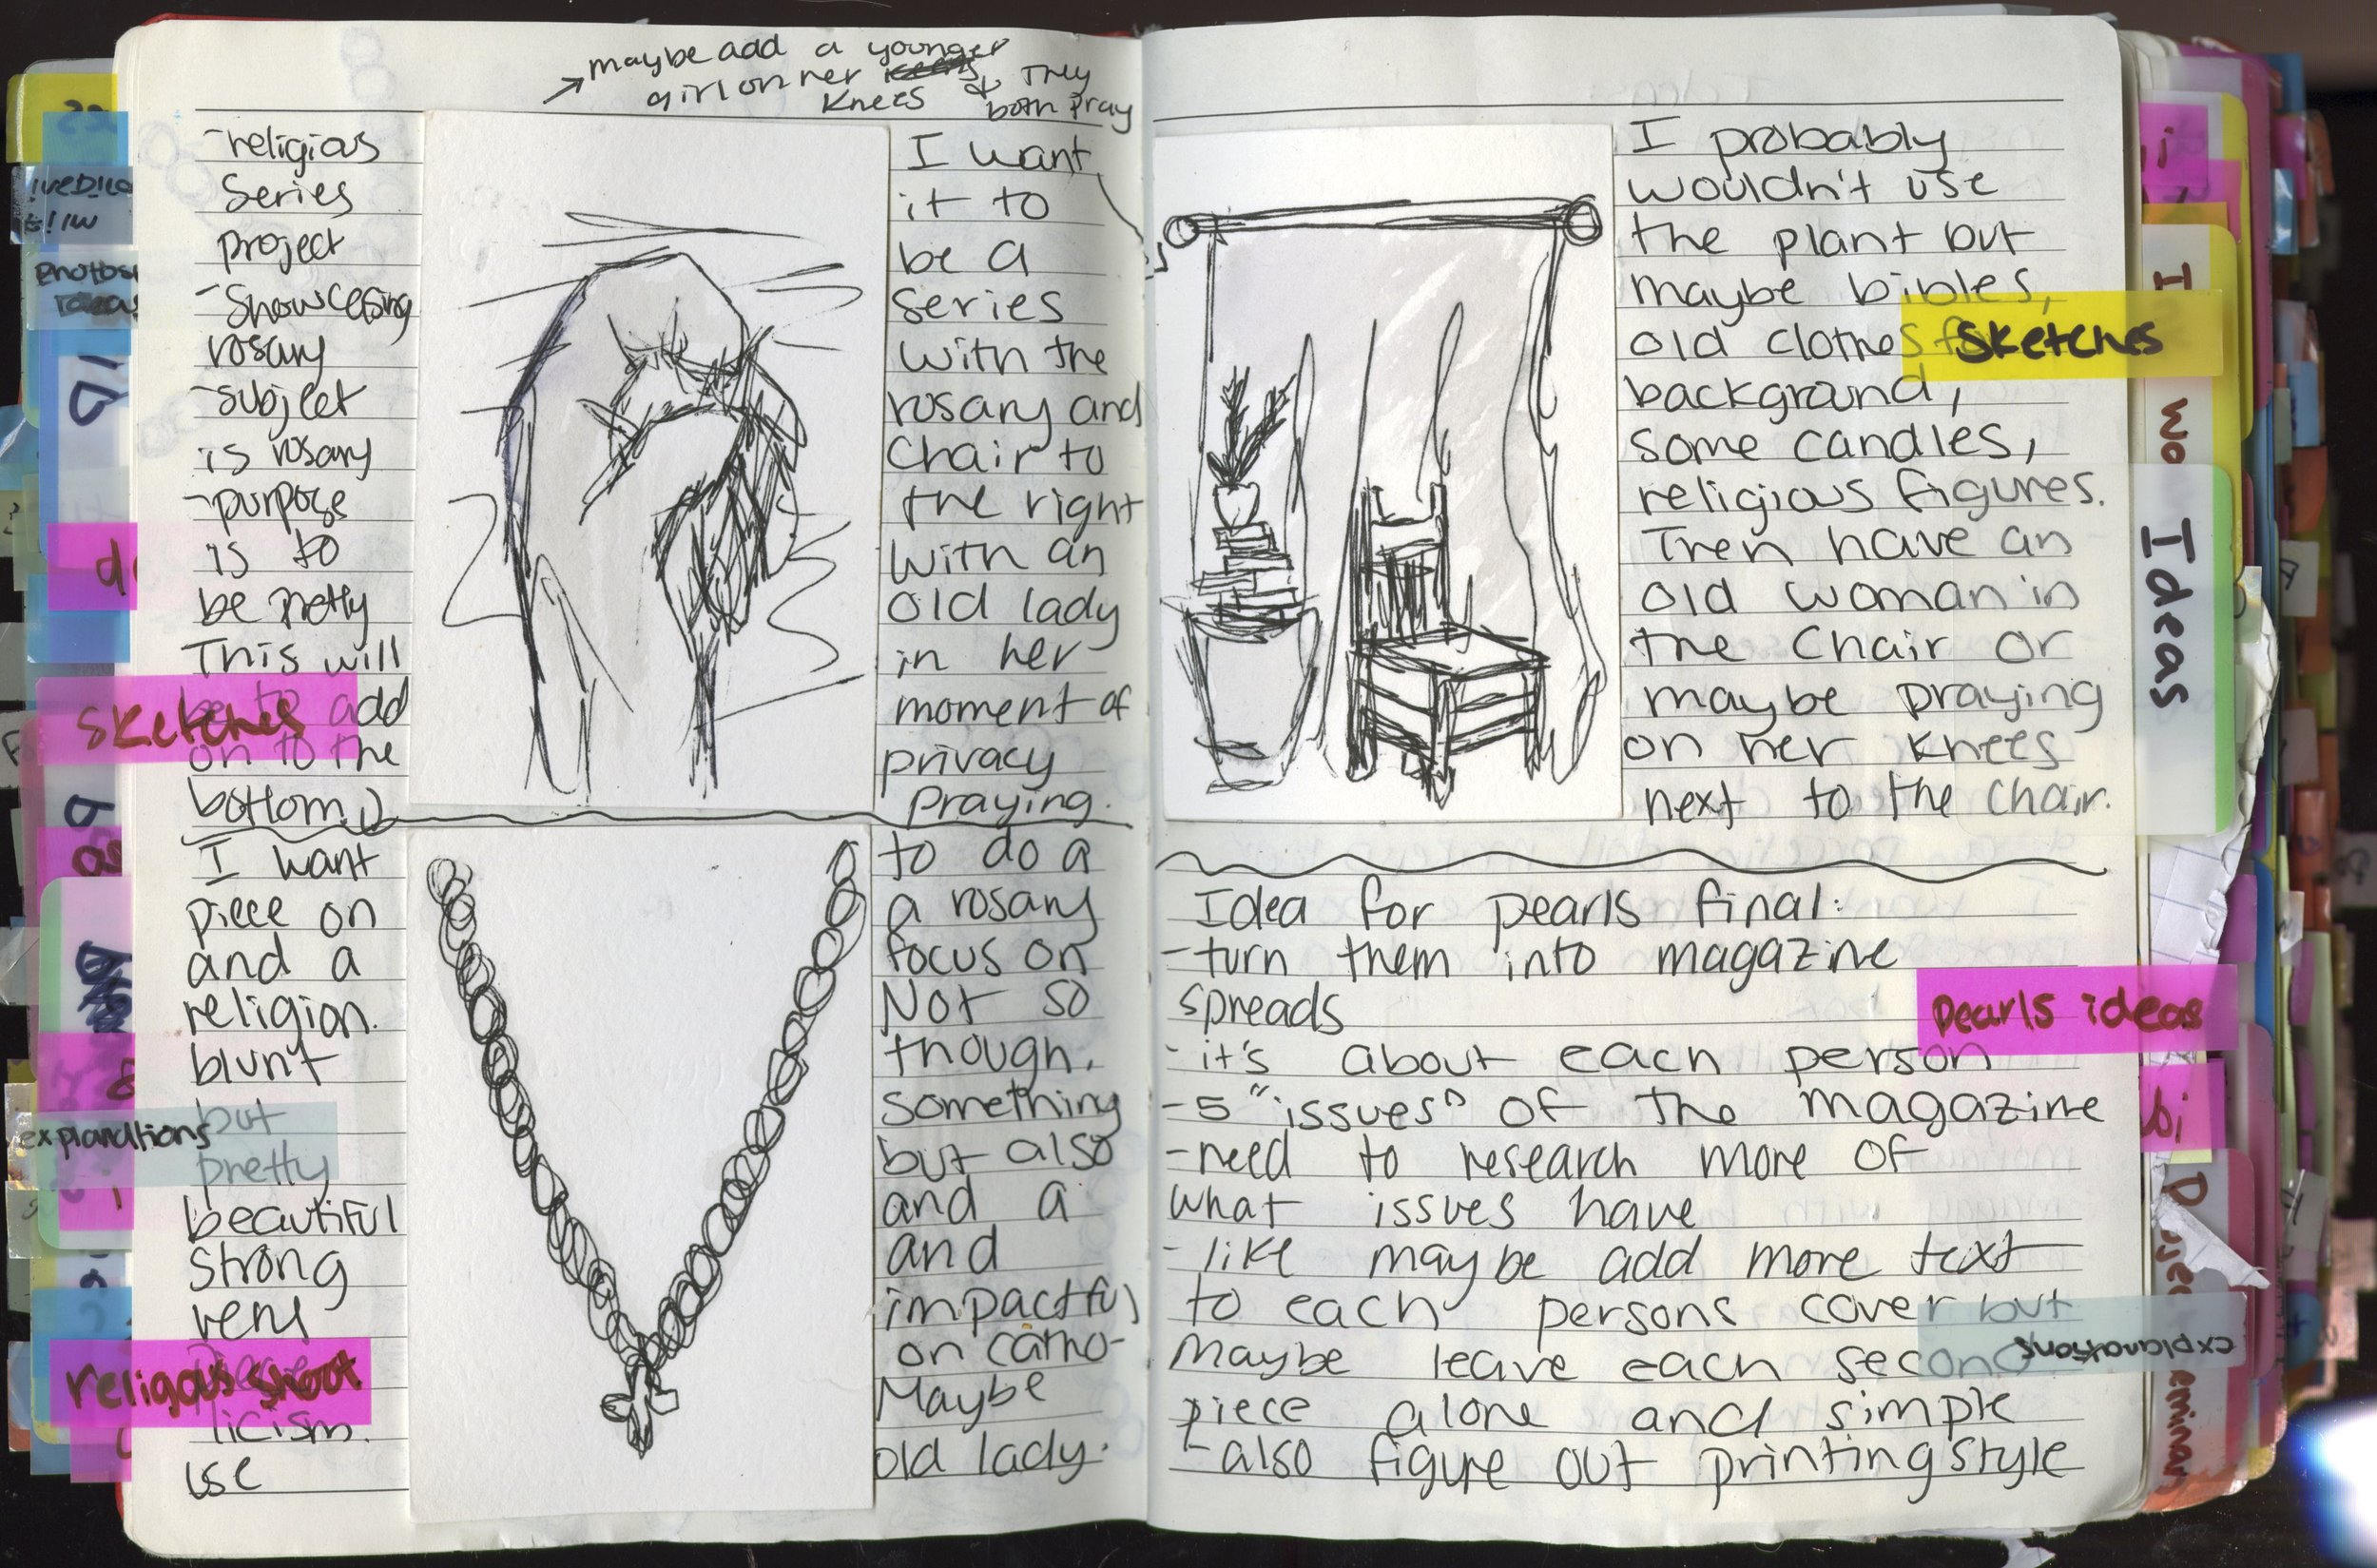 maybe add a younger
girl on her knees & they
both pray
-religious
series
project
-showcasing
rosary
-subject
is rosary
-purpose
is to
be pretty
This will
be to add
on to the
bottom
I want
it to
be a
series
with the
rosary and
chair to
the right
with an
old lady
in her
moment of
privacy
praying.
I want to do a
piece on a rosary
and a focus on
religion. Not so
blunt though.
but something
pretty but also
beautiful and a
strong and
very impactful
piece on catho-
licism. Maybe
use old lady.
sketches
explanations
religous shoot
I probably
wouldn't use
the plant but
maybe bibles,
old clothes
background,
some candles,
religious figures.
Then have an
old woman in
the chair or
maybe praying
on her knees
next to the chair.
Idea for pearls final:
-turn them into magazine
spreads
-it's about each person
-5 "issues" of the magazine
-need to research more of
what issues have
-like maybe add more text
to each persons cover but
maybe leave each second
piece alone and simple
-also figure out printing style
sketches
Ideas
pearls ideas
explanations